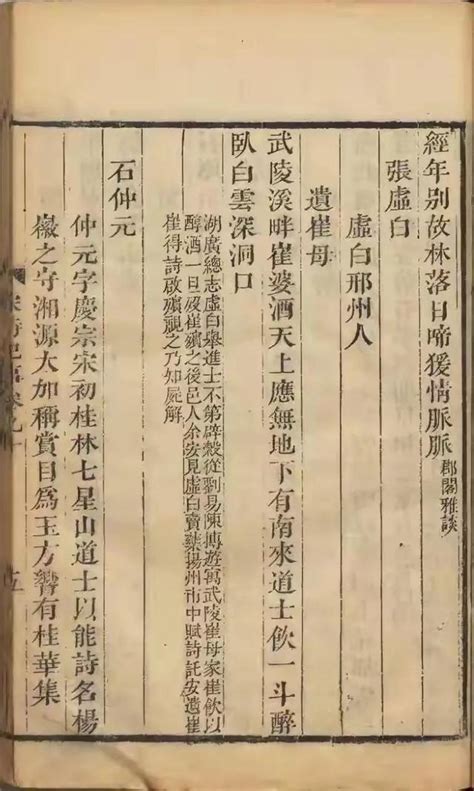 經年別故林落日啼猨情脈脈郡閣雅談
張虛白
虛白邢州人
遺崔母
武陵溪畔崔婆酒天上應無地下有南來道士飲一斗醉
臥白雲深洞口
湖廣總志虛白舉進士不第辟穀從劉易陳摶遊寓武陵崔母家崔飲以
醇酒一旦歿崔殯之後邑人余安見虛白賣藥揚州市中賦詩託安遺崔
崔得詩啟殯視之乃知屍解
石仲元
仲元字慶宗宋初桂林七星山道士以能詩名楊
徽之守湘源大加稱賞目爲玉方響有桂華集